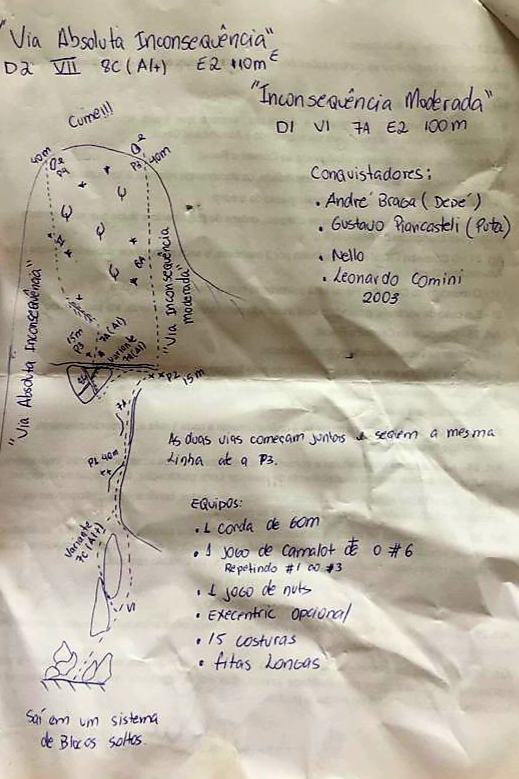 "Via Absoluta Inconsequência"
D2 VII 8C (A1+) E2 110m E
"Inconsequência Moderada"
D1 VI 7A E2 100m
Cume!!!
Conquistadores:
• André Braga (Dedé)
• Gustavo Piancasteli (Puta)
• Nello
• Leonardo Comini
2003
40m
P4
40m
P3
"Via Absoluta Inconsequência"
"Via Inconsequência
moderada"
15m
P3
7A (A1)
Variante
7A (A1)
P2 15m
7A
P1 40m
As duas vias começam juntas e seguem a mesma
Linha até a P3.
Variante
7C (A1+)
VI
Equipos:
• 1 corda de 60m
• 1 jogo de camalot de 0 #6
Repetindo #1 ao #3
• 1 jogo de nuts
• Execentric opcional
• 15 costuras
• fitas Longas
Saí em um sistema
de Blocos soltos.